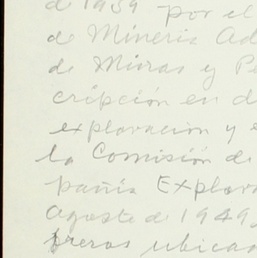 de 1939 por el
de Mineria Ad
de Minas y Pe
cripción en d
exploracion y e
la Comisión de
pañia Explora
Agosto de 1949,
ubicad